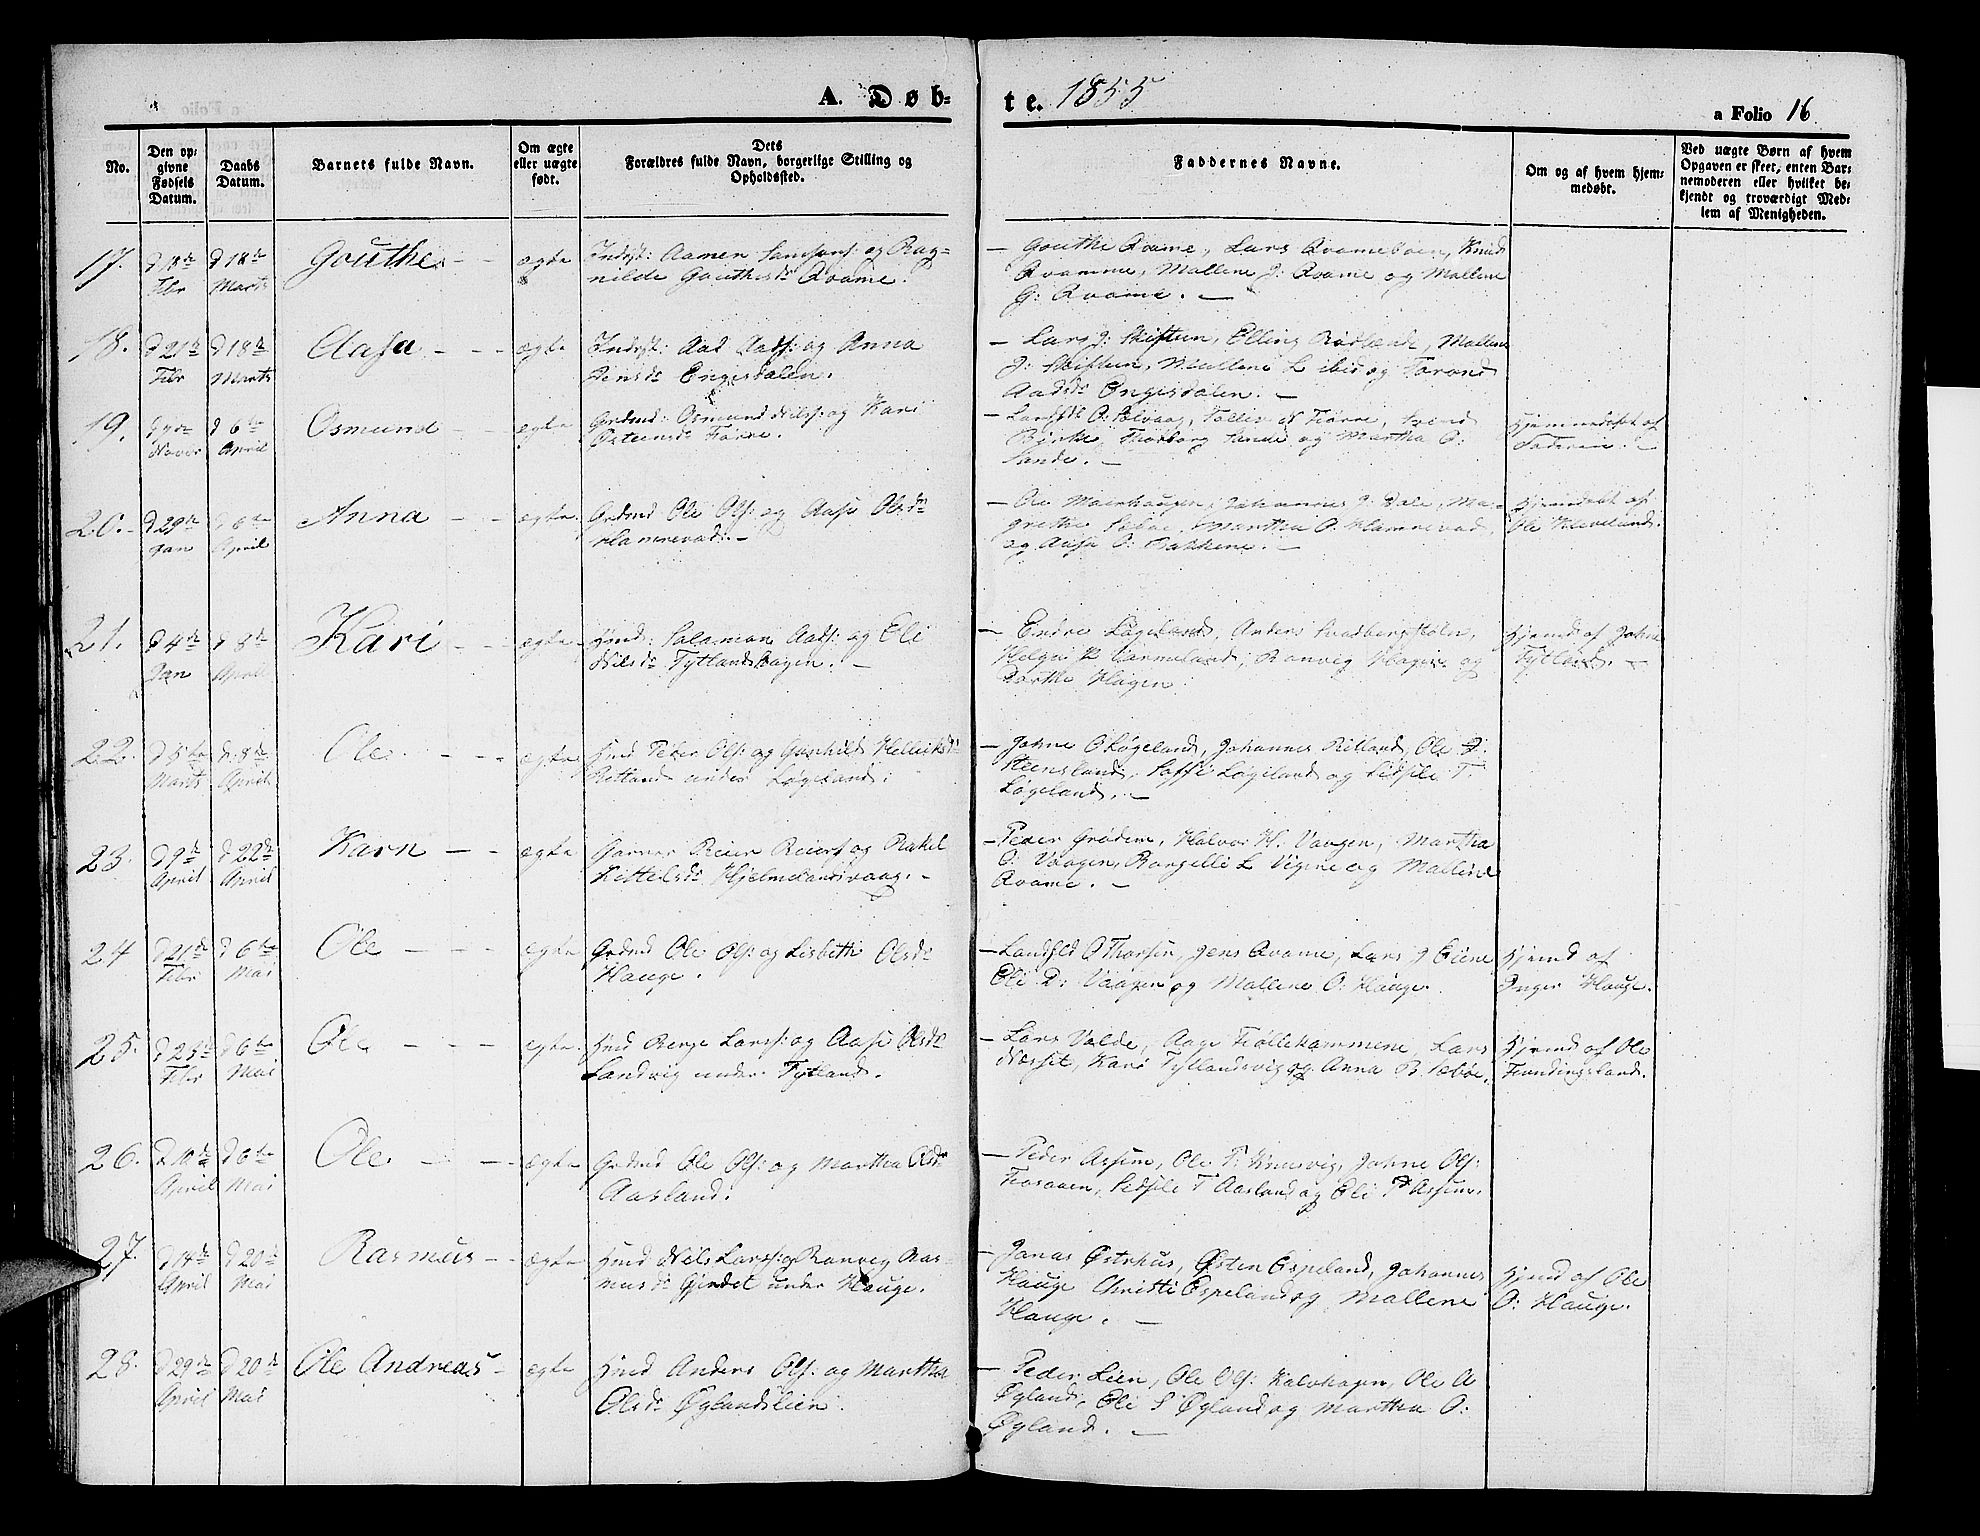 A. Døb-
te. 1855
a Folio 16
No.
Den op-
givne
Fødsels
Datum.
Daabs
Datum.
Barnets fulde Navn.
Om ægte
eller uægte
født.
Dets
Forældres fulde Navn, borgerlige Stilling og
Opholdssted.
Faddernes Navne.
Om og af hvem hjem-
medøbt.
Ved uægte Børn af hvem
Opgaven er skeet, enten Bar-
nemoderen eller hvilket be-
kjendt og troværdigt Med-
lem af Menigheden.
17.
d 18de
Febr
d 18de
Marts
Gouthe - -
ægte
Indsst: Aamen Samsons: og Rag-
nilde Gouthesdr Qvame.
- Gouthe Qvame, Lars Qvamebøen, Knud
Qvamme, Mallene J: Qvame og Mallene
G: Qvame. -
18.
d 21de
Febr
d 18de
Marts
Aasa - - -
ægte
Indsst: Aad Aads: og Anna
Jensdr Engesdalen.
- Lars J: Skiftun, Elling Rødlende, Mallene
J: Skiftun, Mallene L ibid og Torond
Aadsdr Engesdalen. -
19.
Novbr
d 6te
April
Osmund
ægte
Grdmd: Osmund Nils: og Kari
Østensdr Førre.
Førre,
Birke, Thorborg Sande og Martha O:
Sande. -
Hjemmedøbt af
Faderen. -
20.
d 29de
Jan
d 6te
April
Anna - -
ægte.
Grdmd Ole Ols: og Aase Olsdr
Hamrevad. -
- Ole Maierhaugen, Johannes J: Dale, Ma-
grethe Sæbøe, Martha O: Hamrevad,
og Aasa O: Bakkene. -
Hjemdøbt af
Ole Mæveland.
21.
d 4de
Jan
d 8de
April
Kari - -
ægte
Hmd: Salamon Aads: og Eli
Nilsdr Tytlandshagen. -
- Endre Løgeland, Anders Svadbergstøln,
Helge K Værmeland, Ranvig Hagen og
Barthe Hagen.
Hjemd af Johne
Tytland. -
22.
d 5te
Marts
d. 8de
April
Ole. - - -
ægte
Hmd Peder Ols: og Gunhild Helliksdr
Retland under Løgeland:
- Johne O Løgeland, Johannes Ritland, Ole J:
Steensland, Saffi Løgeland og Sidsele T.
Løgeland. -
23.
d 9de
April
d 22de
April
Karn - -
ægte
Garver Reier Reiers og Rakel
Kittelsdr Hjelmelandsvaag. -
- Peder Grødem, Halvor H. Vaagen, Martha
O: Vaagen, Rangelle L Vigene og Mallene
Qvame. -
24
d 21de
Febr
d 6te
Mai
Ole - - -
ægte
Grdmd Ole Ols: og Lisbeth Olsdr
Hauge.
- Landhld O Thorsen, Jens Qvame, Lars J Eiene
Eli D: Vaagen og Mallene O: Hauge.
Hjemd af
Inger Hauge.
25.
d 25de
Febr
d 6te
Mai
Ole - - -
ægte.
Hmd Berge Larss: og Aase Olsdr
Sandvig under Tytland.
- Lars Valde, Aage Trøllekammene, Lars
Næsset, Kari Tytlandsvig og Anna B. Sæbøe.
Hjemd af Ole
Fundingsland.
26.
d 10de
April
d 6te
Mai
Ole. - -
ægte
Grdmd Ole Ols: og Martha Olsdr
Aasland.
- Peder Assem, Ole T: Knutsvig, Johne Ols:
Fosaaen, Sidsele T Aasland og Eli P Assem.
27.
d 14de
April
d 20de
Mai
Rasmus - -
ægte
Hmd Nils Larss: og Ranveg Ras-
musdr Gjerdet under Hauge.
- Jonas Østrhus, Østen Espeland, Johannes
Hauge Christi Espeland og Mallene
Hauge. -
Hjemd af Ole
O: Hauge.
28.
d 29de
April
d 20de
Mai
Ole Andreas -
ægte
Hmd Anders Ols: og Martha
Olsdr Øglandslien.
- Peder Lien, Ole Ols: Kalvhagen, Ole A
Øgland, Eli S Øgland og Martha O:
Øgland. -